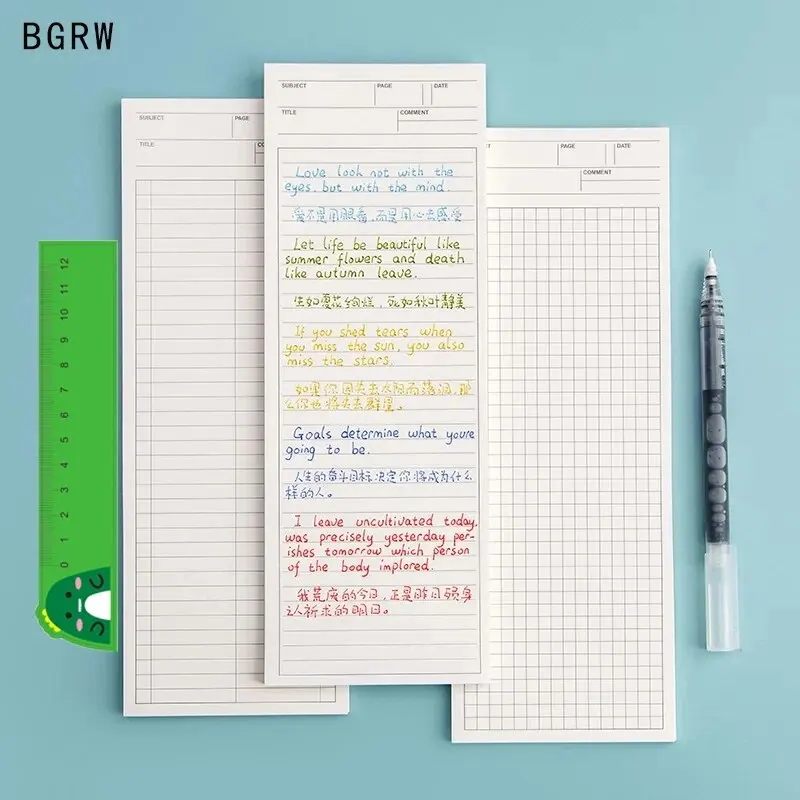 BGRW
SUBJECT PAGE
TITLE CO
SUBJECT PAGE DATE
TITLE COMMENT
Love look not with the
eyes. but with the mind.
爱不是用眼看,而是用心去感受
Let life be beautiful like
summer flowers and death
like autumn leave.
生如夏花绚烂,死如秋叶静美
If you shed tears when
you miss the sun, you also
miss the stars.
如果你因失去太阳而落泪,那
么你也将失去群星。
Goals determine what you're
going to be.
人生的奋斗目标决定你将成为什么
样的人。
I leave uncultivated today,
was precisely yesterday per-
ishes tomorrow which person
of the body implored.
我荒废的今日,正是昨日殒身
之人祈求的明日。
T PAGE DATE
COMMENT
0 1 2 3 4 5 6 7 8 9 10 11 12